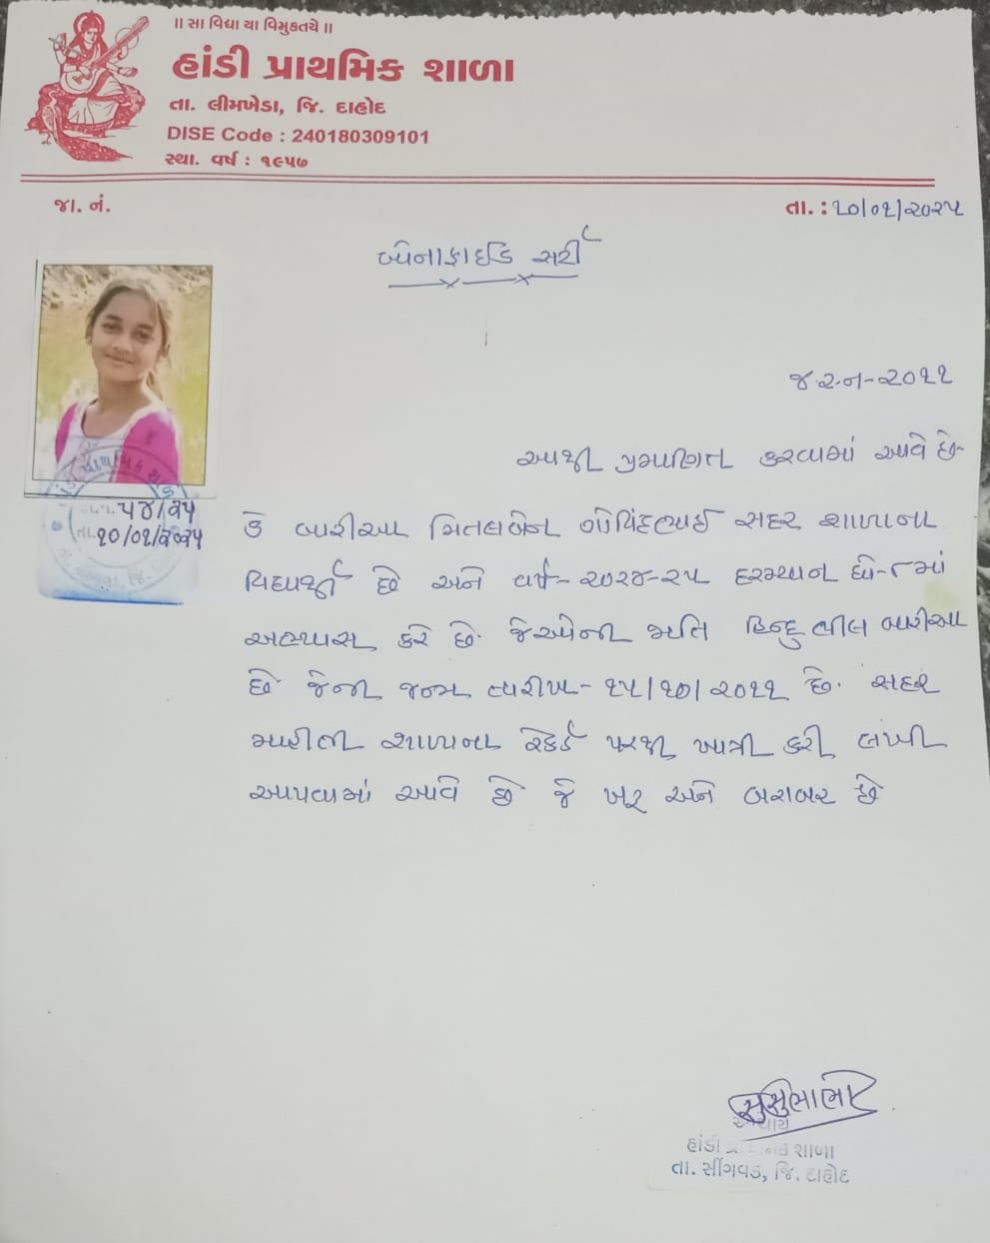 ॥ સા વિદ્યા યા વિમુક્તયે ॥
હાંડી પ્રાથમિક શાળા
તા. લીમખેડા, જિ. દાહોદ
DISE Code : 240180309101
સ્થા. વર્ષ : ૧૯૫૭
જા. નં.
તા. : ૨૦/૦૧/૨૦૨૫
બોનાફાઈડ સર્ટી
જ.ર.ન-૨૦૧૧
આથી પ્રમાણિત કરવામાં આવે છે
કે બારીઆ મિતલબેન ગોવિંદભાઈ સદર શાળાના
વિદ્યાર્થી છે અને વર્ષ-૨૦૨૪-૨૫ દરમ્યાન ધો-૮માં
અભ્યાસ કરે છે. જેઓની જાતિ હિન્દુ ભીલ બારીઆ
છે જેની જન્મ તારીખ- ૧૫/૧૦/૨૦૧૧ છે. સદર
માહીતી શાળાના રેકર્ડ પરથી ખાત્રી કરી લખી
આપવામાં આવે છે જે ખરૂ અને બરાબર છે
૫૪/૨૫
તા. ૨૦/૦૧/૨૦૨૫
આચાર્ય
હાંડી શાળા
તા. સીંગવડ, જિ. દાહોદ